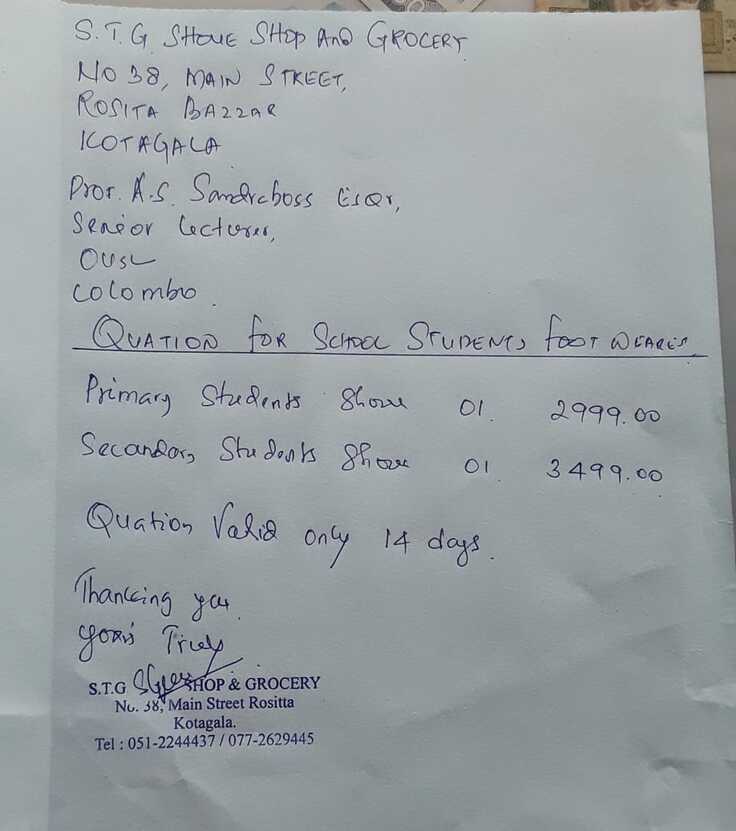 S.T.G. SHOUE SHOP AnD GROCERY
NO 38, MAIN STREET,
ROSITA BAZZAR
KOTAGALA
Pror. A.S. Sandrcboss EsQr,
Senior Lecturer,
OUSL
Colombo.
QUATION FOR SCHOOL STUDENTS FOOT WEARES
Primary Students Shoue 01. 2999.00
Secandory Students Shoue 01 3499.00
Quation Valid only 14 days.
Thanking you.
yours Truly
S.T.G SHOP & GROCERY
No. 38, Main Street Rositta
Kotagala.
Tel : 051-2244437 / 077-2629445